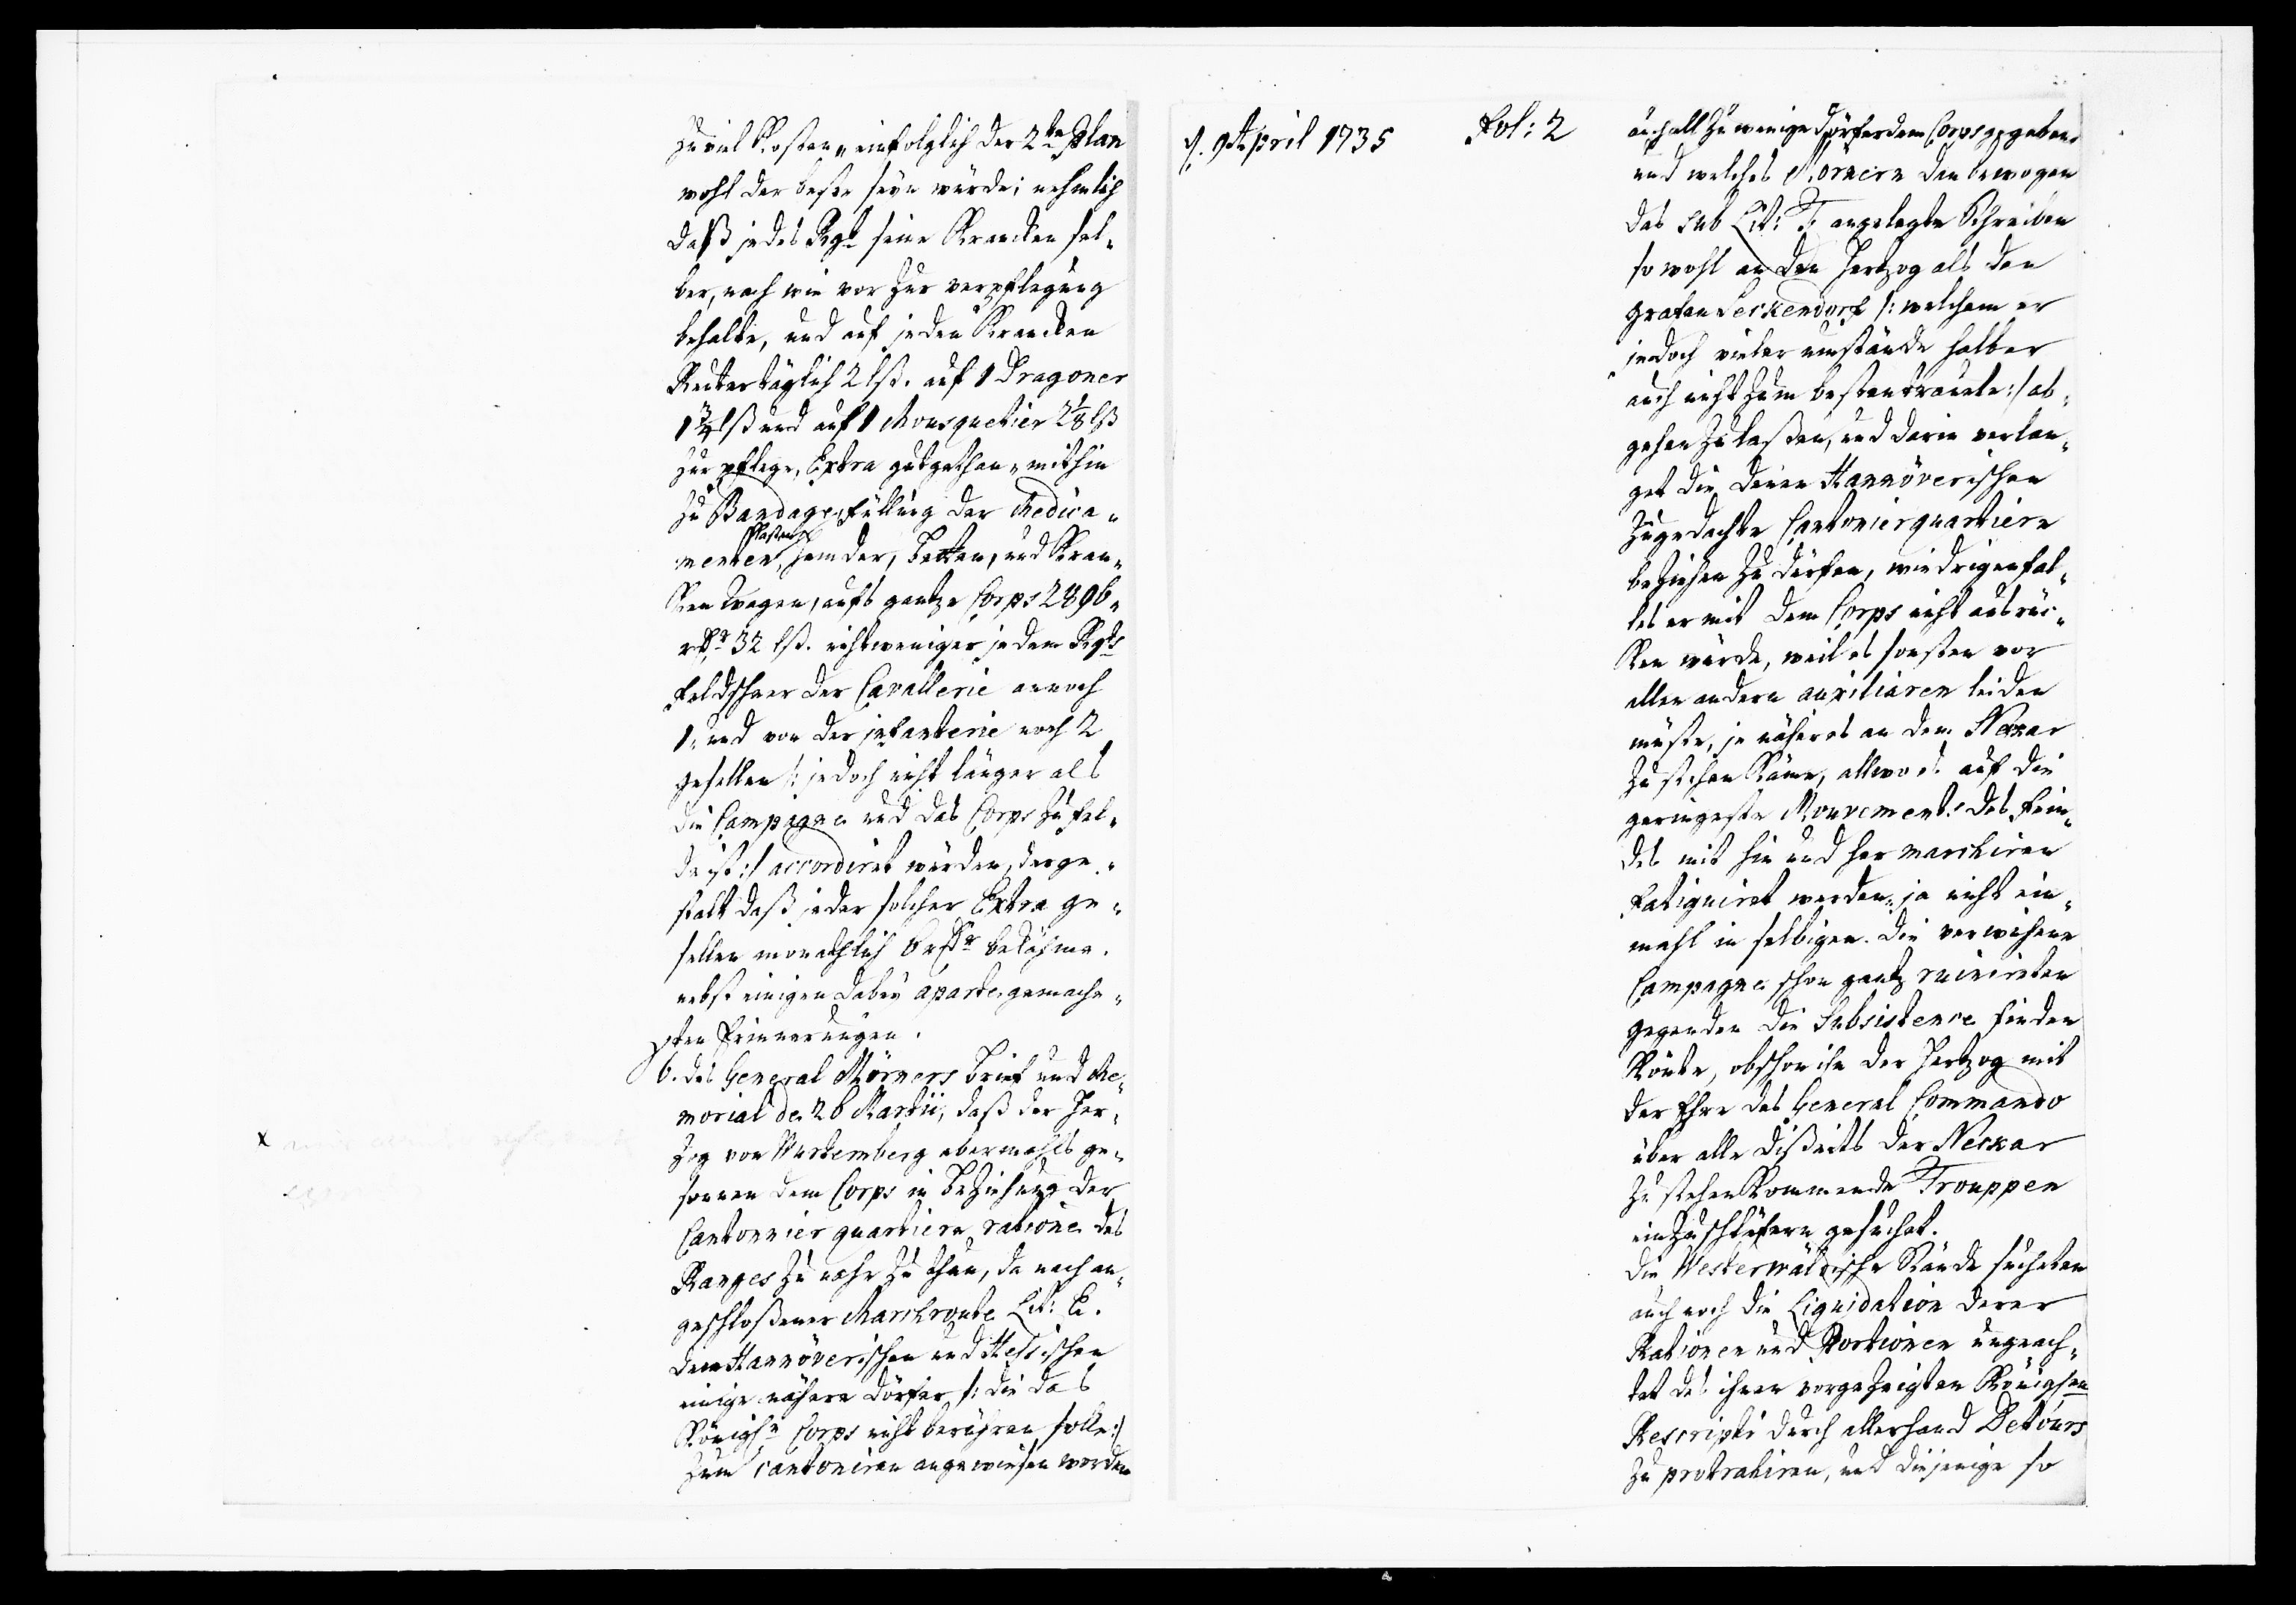 Zu viel Kosten, einfolglich der 2te Plan
wohl der beste seyn würde; nehmlich
daß jedes Rgt seine Krancken sel-
ber, nach wie vor zur verpflegung
behalte, und auf jeden Krancken
Reuter täglich 2 lß. auf 1 Dragoner
1¾ lß und auf 1 Mousquetier lß
zur pflege, Extra gutgethan, mithin
zu Bandage, füllung der Medica-
menten, hemder, Betten, und Kran-
Ken Wagen, aufs gantze Corps 2896
rdr 32 lß. nicht weniger jedem Rgts
feldscheer der Cavallerie annoch
1, und von der infanterie noch 2
gesellen /: jedoch nicht länger als
die Campagne und das Corps zu fel-
de ist :/ accordiret würden, derge-
stalt daß jeder solcher Extra ge-
sellen monathlich 6 rdr bekähme.
nebst einigen dabey aparte gemach-
ten Erinnerungen.
6. des General Mörners brief und Me-
morial de 26 Martii, daß der Her-
zog von Würtemberg abermahls ge-
sonnen dem Corps in beziehung der
Cantonnier quartiere ratione des
Ranges zu nahe zu thun, da nach an-
geschloßener Marchroute Lit: E.
denen Hannöverischen und Hessischen
einige nähere Dörfer /: die das
Königl. Corps nicht berühren solle :/
zum cantoniren angewiesen worden
d. 9 April 1735
Fol: 2
auch all zu wenige dörfer dem Corps gegeben
und welches Mörnern den bewogen
das sub Lit: F. angelegte Schreiben
so wohl an den Hertzog als den
Grafen Seckendorf /: welchem er
jedoch vieler umstände halber
auch nicht zum besten trauete :/ ab-
gehen zu laßen, und darin verlan-
get die denen Hannöverischen
zugedachte Cantonierquartiere
beziehen zu dürfen, wiedrigenfal-
les er mit dem Corps nicht ausrüc-
Ken würde, weil es sonsten vor
allen andern auxiliaren leiden
müste, je näher es an dem Neckar
zu stehen Käme, allwo es auf die
geringeste Mouvements des Fein-
des mit hin und her marchiren
fatiguiret werden, ja nicht ein-
mahl in selbigen die verwichene
Campagne schon gantz ruinirten
gegenden die Subsistence finden
Könte, obschon ihn der Hertzog mit
der Ehre des General Commando
über alle dißeits der Neckar
zu stehen Kommende Trouppen
einzuschläfern gesuchet.
Die Westerwäldische Stände suchten
auch noch die Liquidation derer
Rationen und Portionen ungeach-
tet des ihnen vorgezeigten Königlen
Rescripts durch allerhand Detours
zu protrahiren, und diejenige so